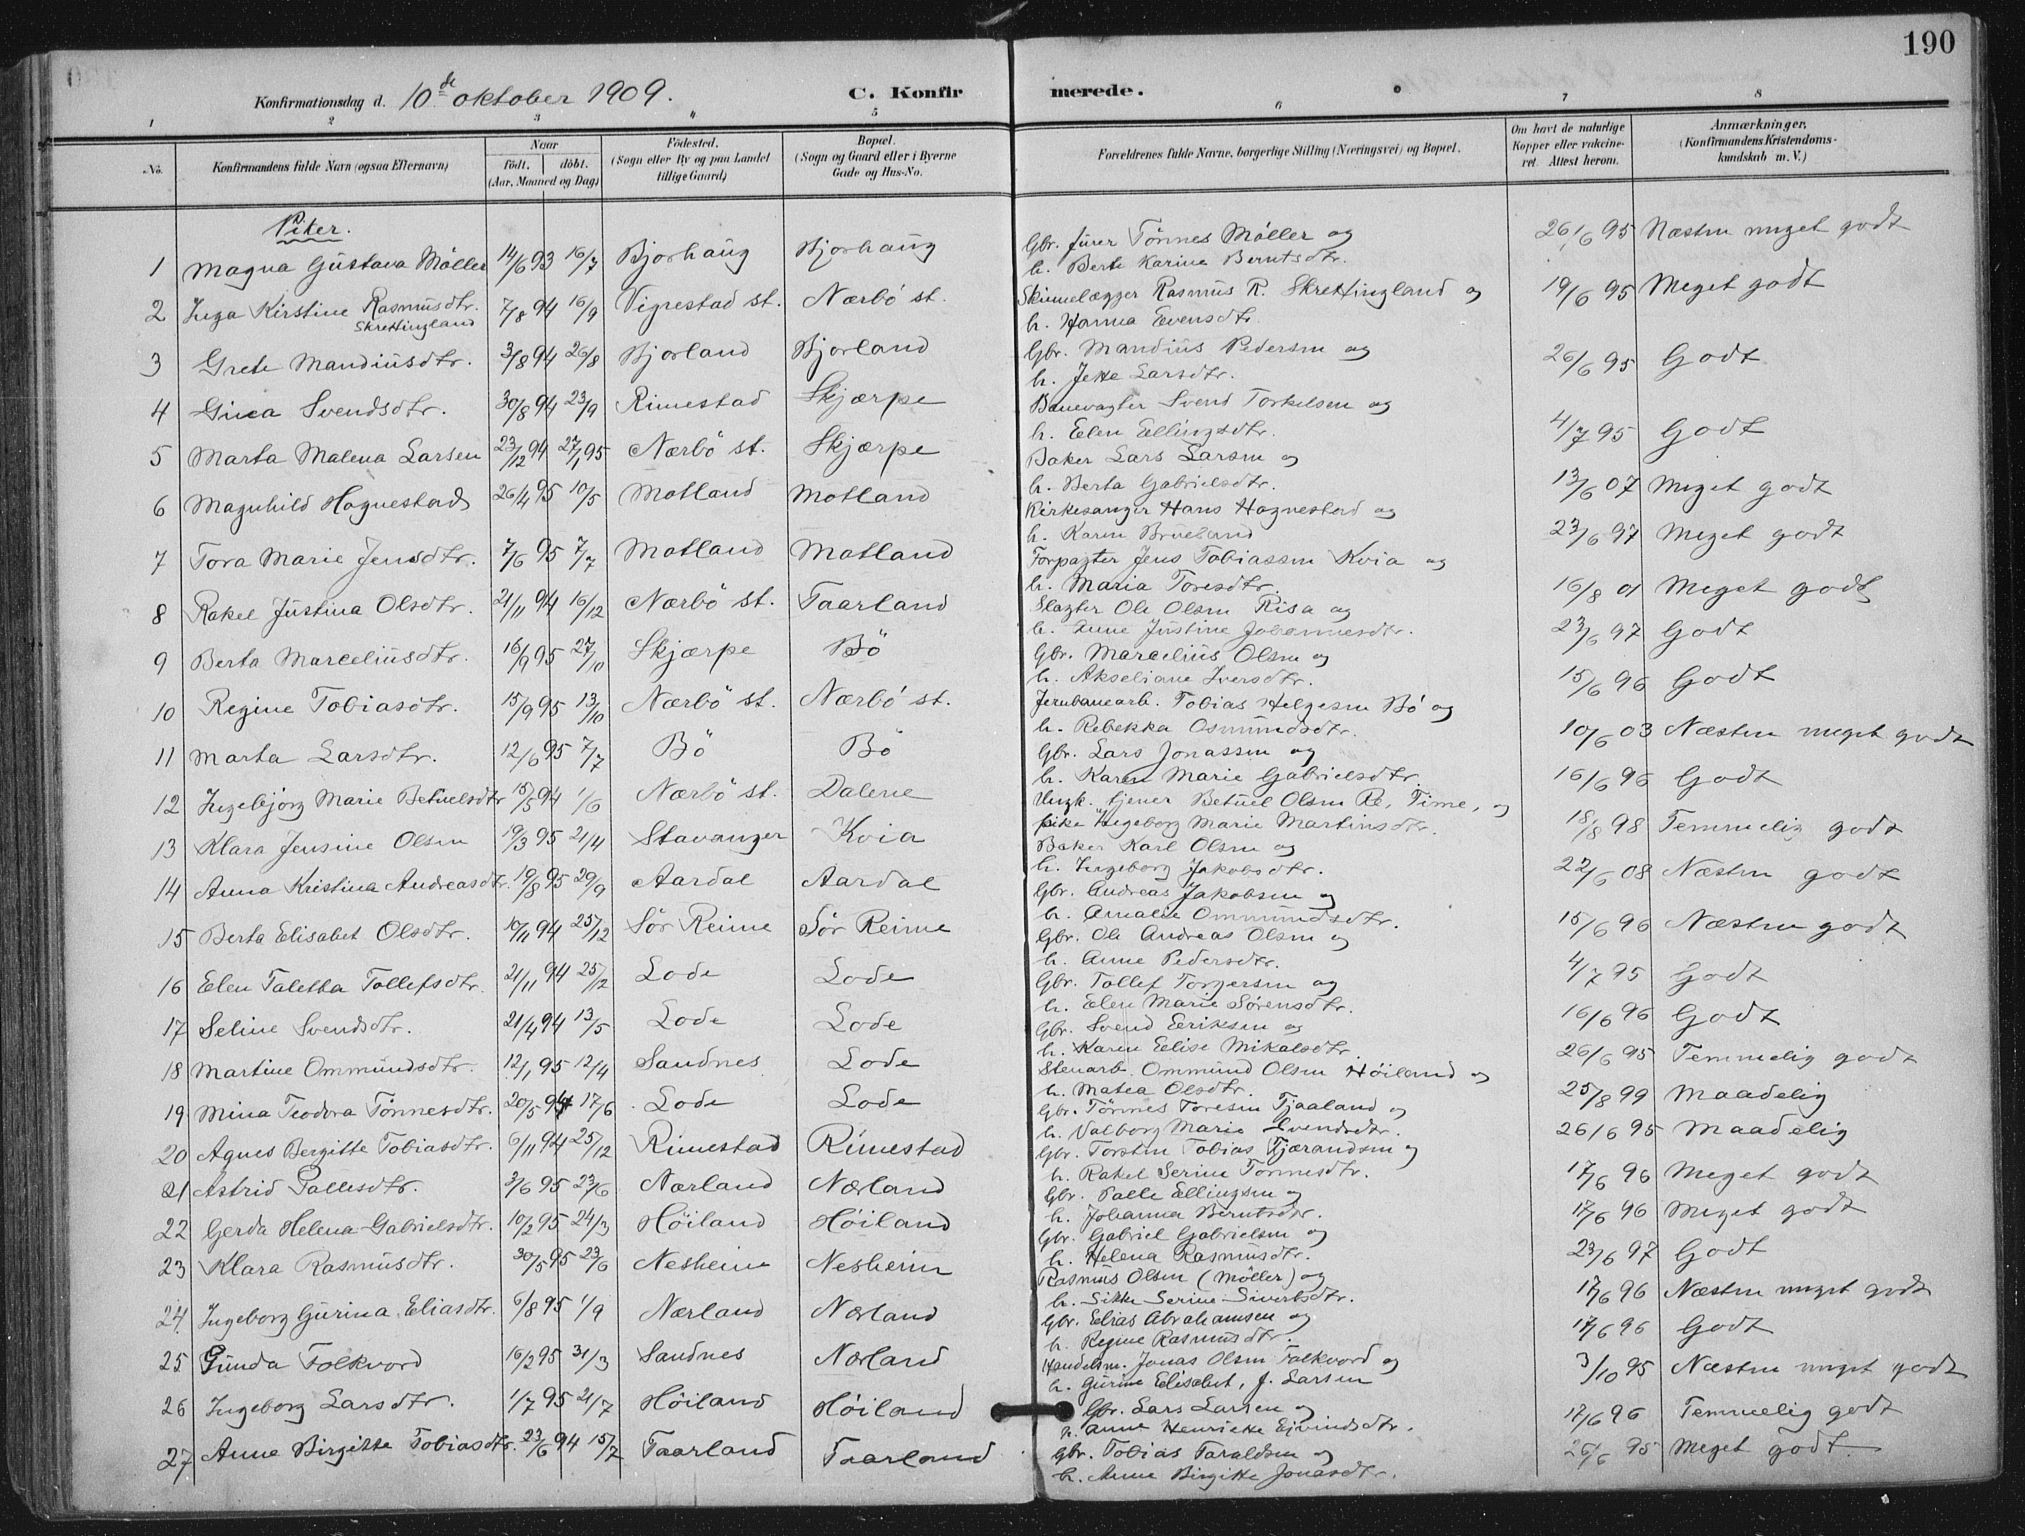 190
Konfirmationsdag d. 10de oktober 1909.
C. Konfirmerede.
1 2 3 4 5 6 7 8
No.
Konfirmandens fulde Navn (ogsaa Efternavn)
Naar
født. døbt.
(Aar, Maaned og Dag)
Fødested.
(Sogn eller By og paa Landet
tillige Gaard)
Bopæl.
(Sogn og Gaard eller i Byerne
Gade og Hus-No.
Forældrenes fulde Navne, borgerlige Stilling (Næringsvei) og Bopæl.
Om havt de naturlige
Kopper eller vakcine-
ret. Attest herom.
Anmærkninger,
(Konfirmandens Kristendoms-
kundskab m. V.)
Piker.
1 Magna Gustava Møller 14/6 93 16/7 Bjorhaug Bjorhaug Gbr. fürer Tønnes Møller og 26/6 95 Næsten meget godt
h. Berte Karine Berntsdtr.
2 Inga Kirstine Rasmusdtr. 7/8 94 16/9 Vigrestad st. Nærbö st. Skinnelægger Rasmus R. Skrettingland og 19/6 95 Meget godt
Skrettingland
h. Hanna Evensdtr.
3 Grete Mandiusdtr. 3/8 94 26/8 Bjorland Bjorland Gbr. Mandius Pedersen og 26/6 95 Godt
h. Jette Larsdtr.
4 Svendsdtr. 30/8 94 23/9 Rimestad Skjærpe Banevagter Svend Torkelsen og 4/7 95 Godt
h. Elen Ellingsdtr.
5 Marta Malena Larsen 23/12 94 27/1 95 Nærbö st. Skjærpe Baker Lars Larsen og 13/6 07 Meget godt
h. Berta Gabrielsdtr.
6 Magnhild Hognestad 26/4 95 10/5 Motland Motland Kirkesanger Hans Hognestad og 23/6 97 Meget godt
h. Karen Brueland
7 Tora Marie Jensdtr. 7/6 95 7/7 Motland Motland Forpagter Jens Tobiassen Kvia og 16/8 01 Meget godt
h. Maria Toresdtr.
8 Rakel Justina Olsdtr. 21/11 94 16/12 Nærbö st. Taarland Slagter Ole Olsen Risa og 23/6 97 Godt
h. Anne Justine Johannesdtr.
9 Berta Marceliusdtr. 16/9 95 27/10 Skjærpe Bö Gbr. Marcelius Olsen og 15/6 96 Godt
h. Akseliane Iversdtr.
10 Regine Tobiasdtr. 15/9 95 13/10 Nærbö st. Nærbö st. Jernbanearb. Tobias Helgesen Bö og 10/6 03 Næsten meget godt
h. Rebekka Osmundsdtr.
11 Marta Larsdtr. 12/6 95 7/7 Bö Bö Gbr. Lars Jonassen og 16/6 96 Godt
h. Karen Marie Gabrielsdtr.
12 Ingebjörg Marie Betuelsdtr 15/5 94 1/6 Nærbö st. Dalene Ungk. tjener Betuel Olsen Re, Time, og 18/8 98 Temmelig godt
pike Ingeborg Marie Martinsdtr.
13 Klara Jensine Olsen 19/3 95 21/4 Stavanger Kvia Baker Karl Olsen og 22/6 08 Næsten godt
h. Ingeborg Jakobsdtr.
14 Anna Kristina Andreasdtr. 19/8 95 29/9 Aardal Aardal Gbr. Andreas Jakobsen og 15/6 96 Næsten godt
h. Amalie Ommundsdtr.
15 Berta Elisabet Olsdtr. 10/11 94 25/12 Sör Reime Sör Reime Gbr. Ole Andreas Olsen og 4/7 95 Godt
h. Anne Pedersdtr.
16 Elen Taletta Tollefsdtr. 21/11 94 25/12 Lode Lode Gbr. Tollef Torgersen og 16/6 96 Godt
h. Elen Marie Sörensdtr.
17 Seline Svendsdtr. 21/4 94 13/5 Lode Lode Gbr. Svend Eeriksen og 26/6 95 Temmelig godt
h. Karen Elise Mikalsdtr.
18 Martine Ommundsdtr. 12/1 95 12/4 Sandnes Lode Stenarb. Ommund Olsen Höiland og 25/8 99 Maadelig
h. Matea Olsdtr.
19 Mina Teodora Tönnesdtr. 20/5 94 17/6 Lode Lode Gbr. Tönnes Toresen Tjaaland og 26/6 95 Maadelig
h. Valborg Marie Svendsdtr.
20 Agnes Bergitte Tobiasdtr. 6/11 94 25/12 Rimestad Rimestad Gbr. Torsten Tobias Tjærandsen og 17/6 96 Meget godt
h. Rakel Serine Tönnesdtr.
21 Astrid Pallesdtr. 3/6 95 23/6 Nærland Nærland Gbr. Palle Ellingsen og 17/6 96 Meget godt
h. Johanna Berntsdtr.
22 Gerda Helena Gabrielsdtr. 10/2 95 24/3 Höiland Höiland Gbr. Gabriel Gabrielsen og 23/6 97 Godt
h. Helena Rasmusdtr.
23 Klara Rasmusdtr. 30/5 95 23/6 Nesheim Nesheim Rasmus Olsen (Möller) og 17/6 96 Næsten meget godt
h. Sikke Serine Sivertsdtr.
24. Ingeborg Gurina Eliasdtr. 6/8 95 1/9 Nærland Nærland Gbr. Elias Abrahamsen og 17/6 96 Godt
h. Regine Rasmusdtr.
25 Gunda Folkvord 16/2 95 31/3 Sandnes Nærland Handelsm. Jonas Olsen Folkvord og 3/10 95 Næsten meget godt
h. Gurine Elisabet, f. Larsen
26 Ingeborg Larsdtr. 1/7 95 21/7 Höiland Höiland Gbr. Lars Larsen og 17/6 96 Temmelig godt
h. Anne Henrikke Eivindsdtr.
27 Anne Birgitte Tobiasdtr. 23/6 94 15/7 Taarland Taarland Gbr. Tobias Taraldsen og 26/6 95 Meget godt.
h. Anne Birgitte Jonasdtr.